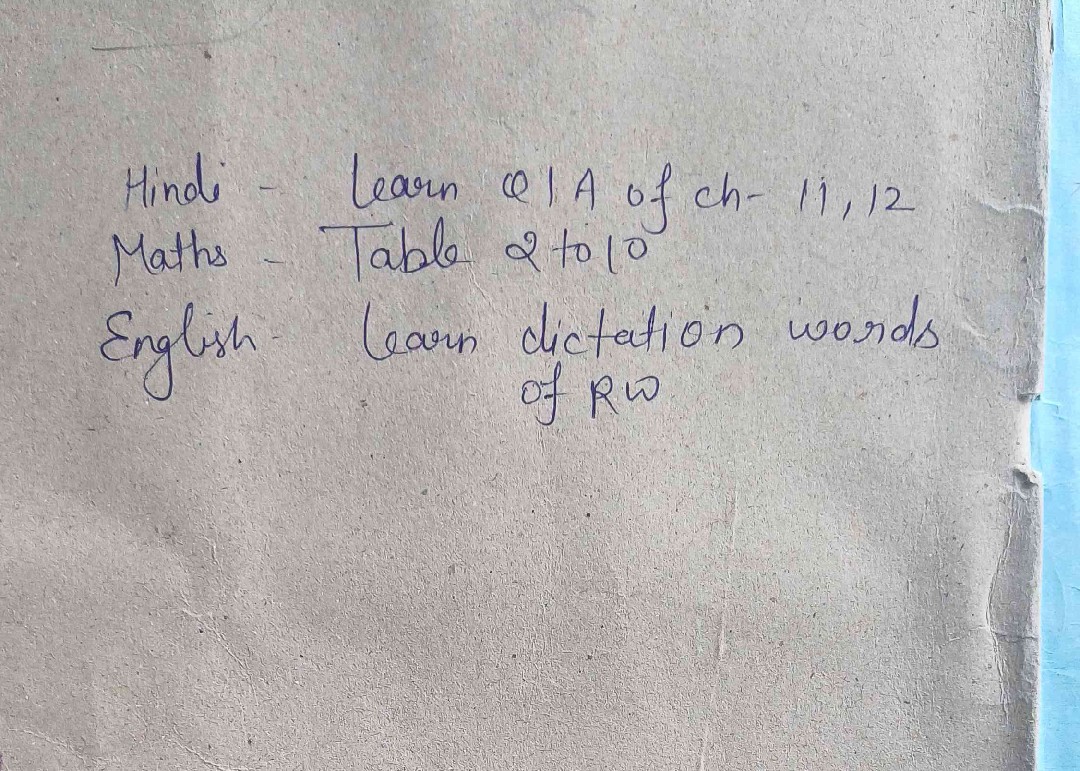 Hindi - Learn Q|A of ch- 11, 12
Maths - Table 2 to 10
English - learn dictation words
of RW